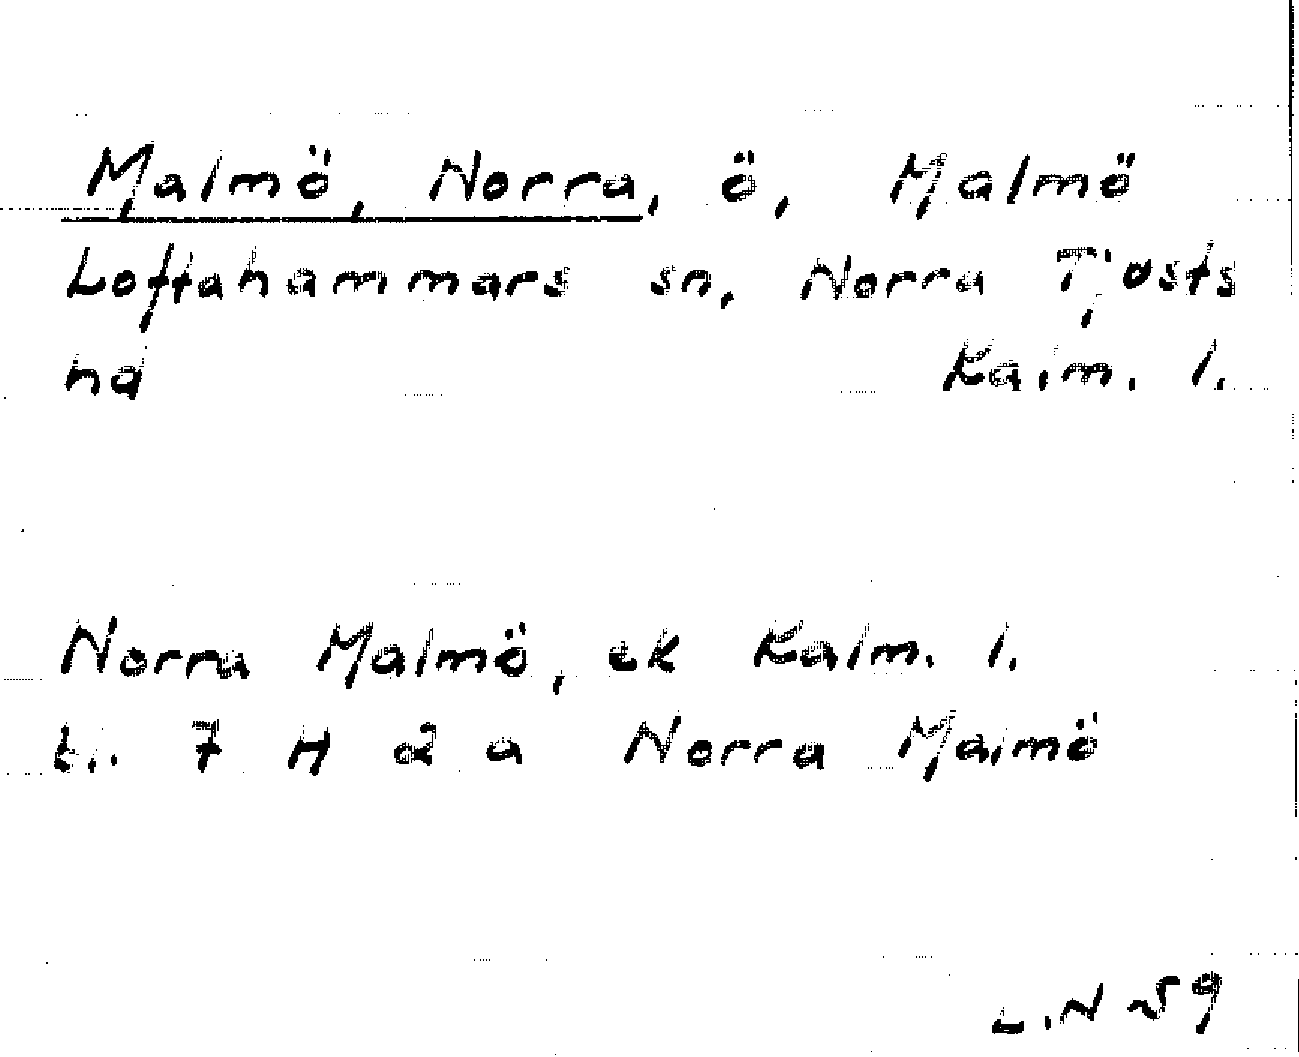 Malmö, Norra, ö, Malmö
Loftahammars sn, Norra Tjusts
hd Kalm. l.
Norra Malmö, ek Kalm. l.
bl. 7 H d a Norra Malmö
L.N 59